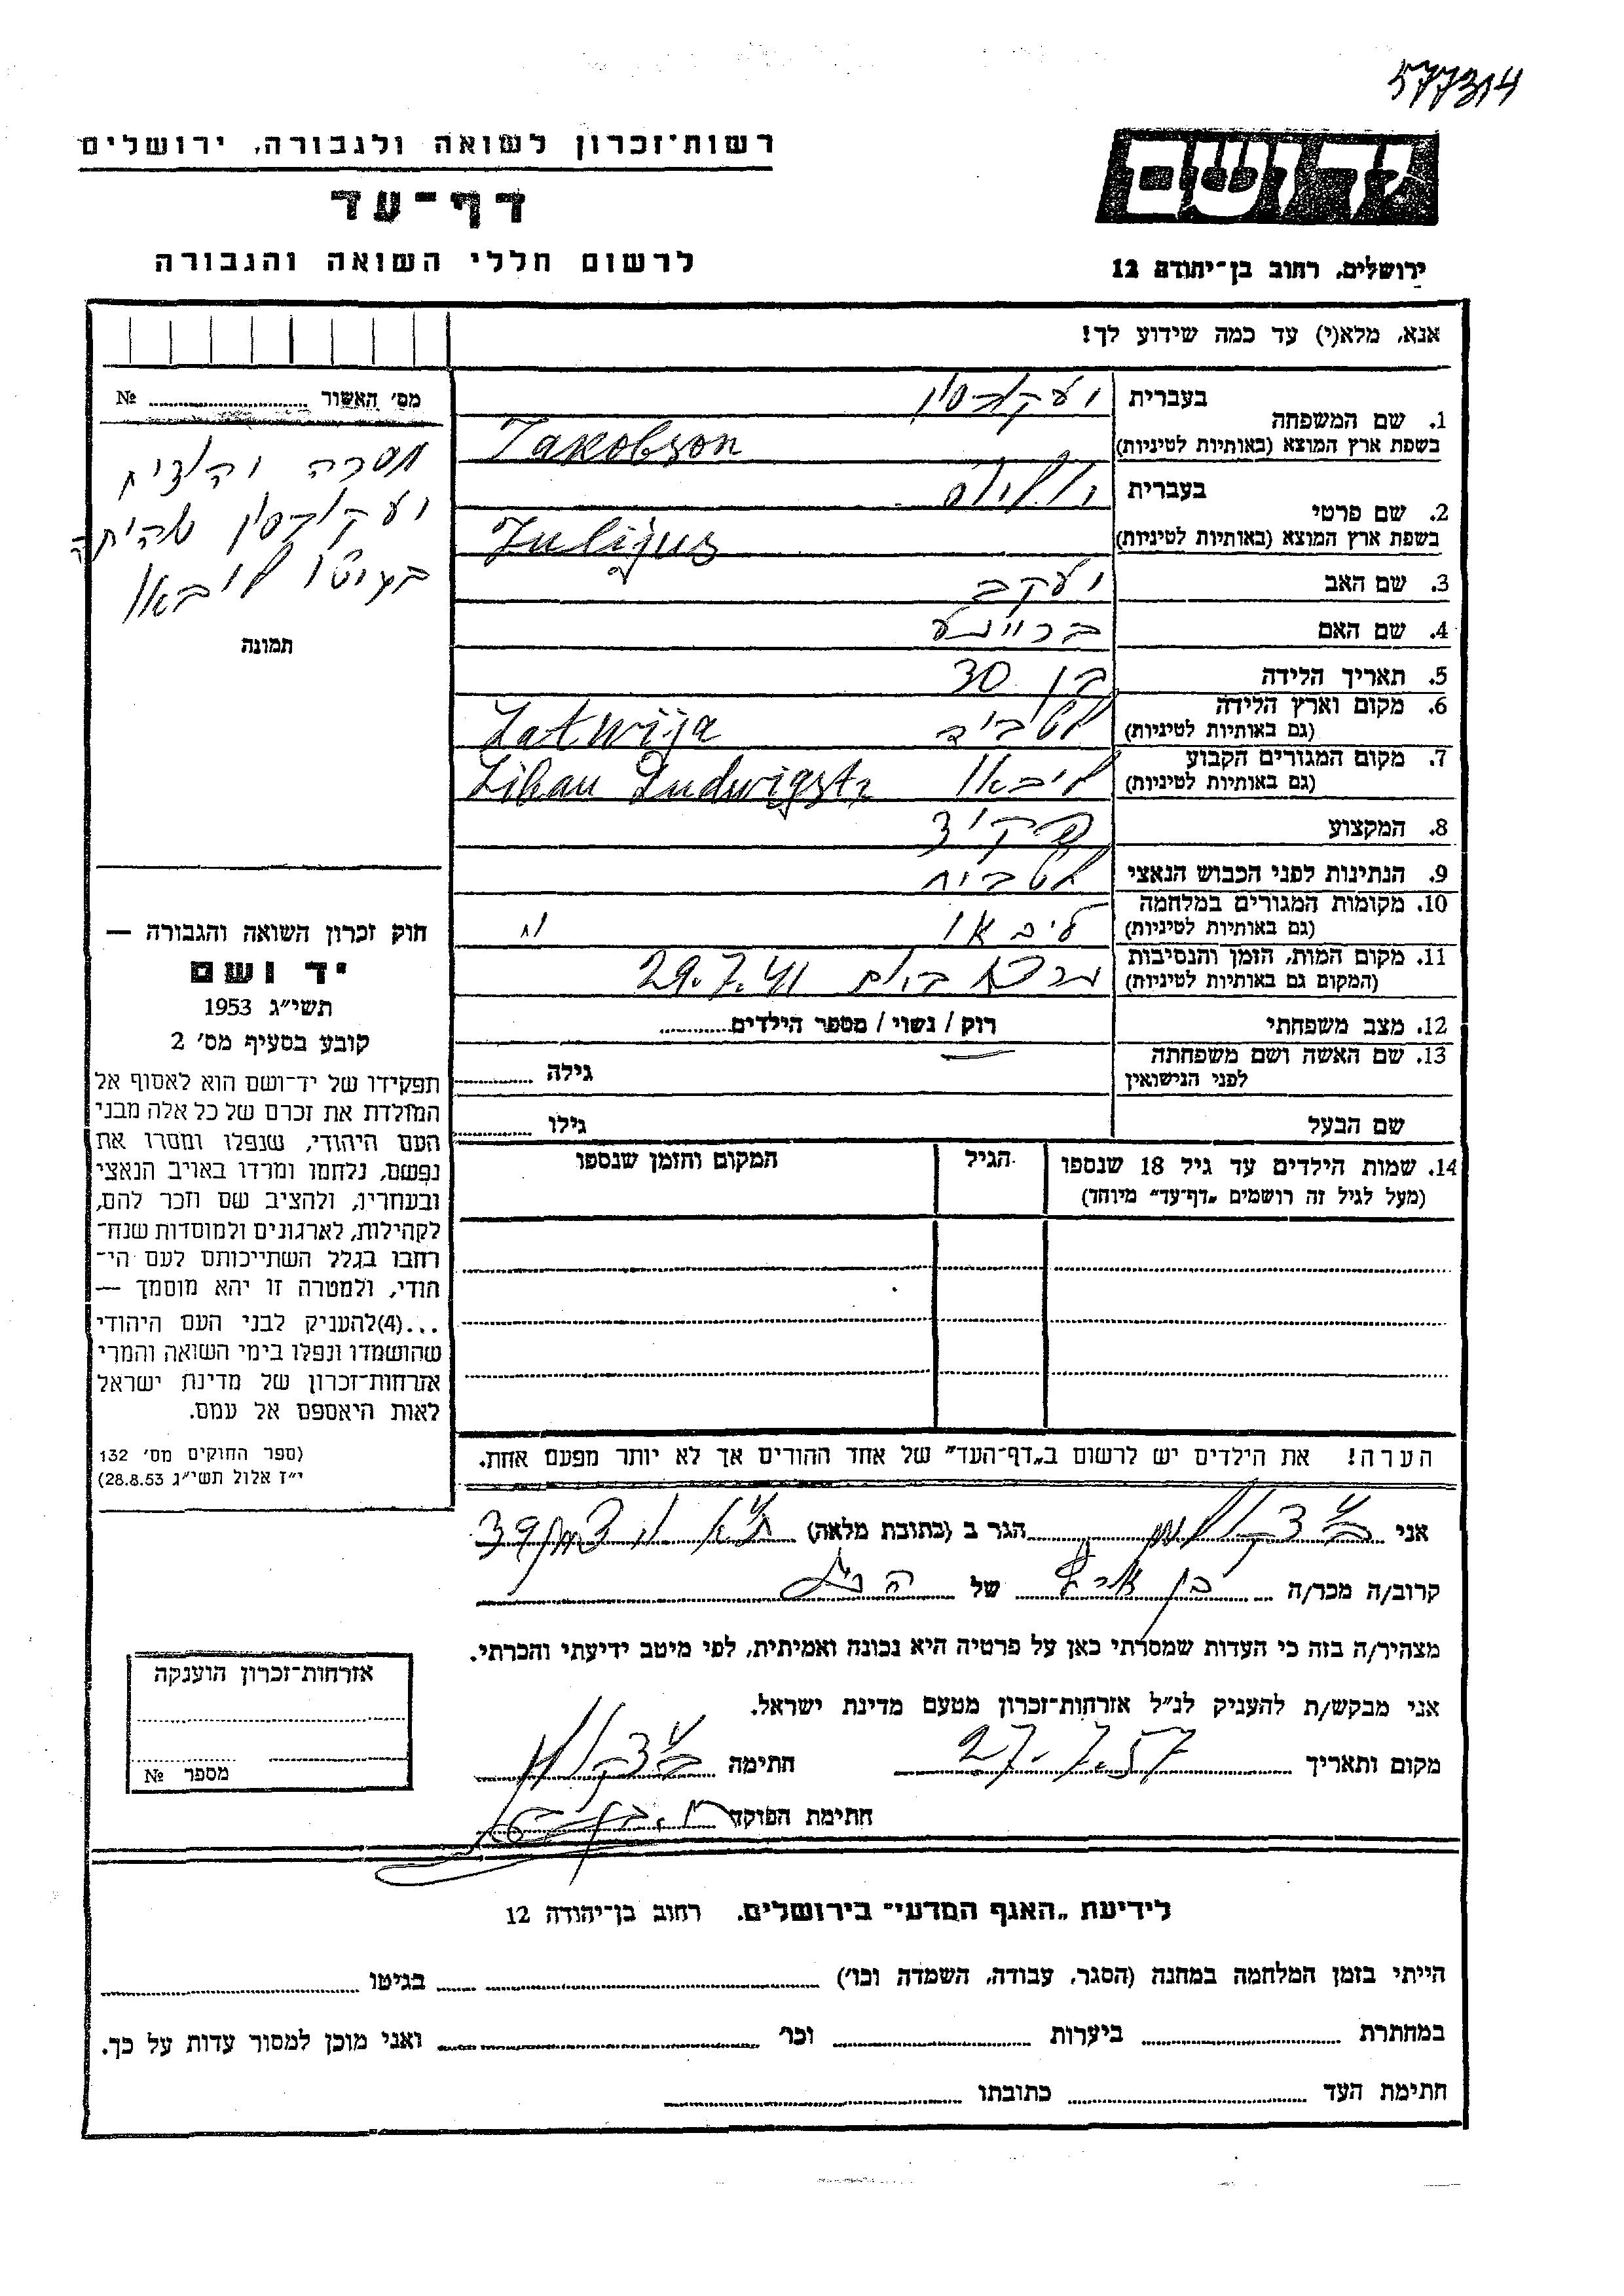 577314
רשות־זכרון לשואה ולגבורה, ירושלים
דף־עד
לרשום חללי השואה והגבורה
יד ושם
ירושלים, רחוב בן־יהודה 12
אנא, מלא(י) עד כמה שידוע לך!
מס׳ האשור № 
יעקובסון
תמונה
1. שם המשפחה בעברית יעקובסון
בשפת ארץ המוצא (באותיות לטיניות) Jakobson
2. שם פרטי בעברית יוליוס
בשפת ארץ המוצא (באותיות לטיניות) Julijus
3. שם האב יעקב
4. שם האם
5. תאריך הלידה בן 30
6. מקום וארץ הלידה (גם באותיות לטיניות) Latwija
7. מקום המגורים הקבוע (גם באותיות לטיניות) ליבאו Libau Ludwigstr
8. המקצוע פקיד
9. הנתינות לפני הכבוש הנאצי לטבית
10. מקומות המגורים במלחמה (גם באותיות לטיניות) ליבאו
11. מקום המות, הזמן והנסיבות (המקום גם באותיות לטיניות) 29.7.41
12. מצב משפחתי רוק / נשוי / מספר הילדים
13. שם האשה ושם משפחתה לפני הנישואין גילה
שם הבעל גילו
14. שמות הילדים עד גיל 18 שנספו הגיל המקום והזמן שנספו
(מעל לגיל זה רושמים „דף־עד״ מיוחד)
חוק זכרון השואה והגבורה —
יד ושם
תשי״ג 1953
קובע בסעיף מס׳ 2
תפקידו של יד־ושם הוא לאסוף אל
המולדת את זכרם של כל אלה מבני
העם היהודי, שנפלו ומסרו את
נפשם, נלחמו ומרדו באויב הנאצי
ובעוזריו, ולהציב שם וזכר להם,
לקהילות, לארגונים ולמוסדות שנח־
רבו בגלל השתייכותם לעם הי־
הודי, ולמטרה זו יהא מוסמך —
...(4)להעניק לבני העם היהודי
שהושמדו ונפלו בימי השואה והמרי
אזרחות־זכרון של מדינת ישראל
לאות היאספם אל עמם.
(ספר החוקים מס׳ 132
י״ז אלול תשי״ג 28.8.53)
הערה! את הילדים יש לרשום ב„דף־העד״ של אחד ההורים אך לא יותר מפעם אחת.
אני הגר ב (כתובת מלאה)
קרוב/ה מכר/ה של
מצהיר/ה בזה כי העדות שמסרתי כאן על פרטיה היא נכונה ואמיתית, לפי מיטב ידיעתי והכרתי.
אני מבקש/ת להעניק לנ״ל אזרחות־זכרון מטעם מדינת ישראל.
מקום ותאריך 27.7.57 חתימה
חתימת הפוקד
אזרחות־זכרון הוענקה
מספר №
לידיעת „האגף המדעי״ בירושלים, רחוב בן־יהודה 12
הייתי בזמן המלחמה במחנה (הסגר, עבודה, השמדה וכו׳) בגיטו
במחתרת ביערות וכו׳ ואני מוכן למסור עדות על כך.
חתימת העד כתובתו